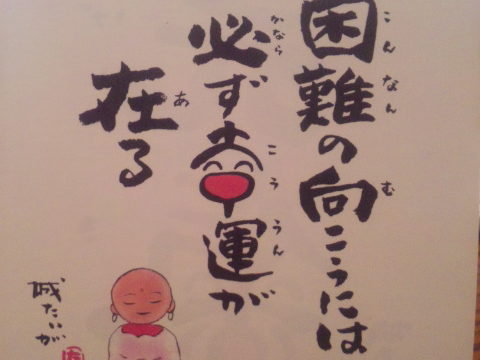 困難の向こうには
こんなん む
必ず幸運が
かなら こううん
在る
あ
たいが